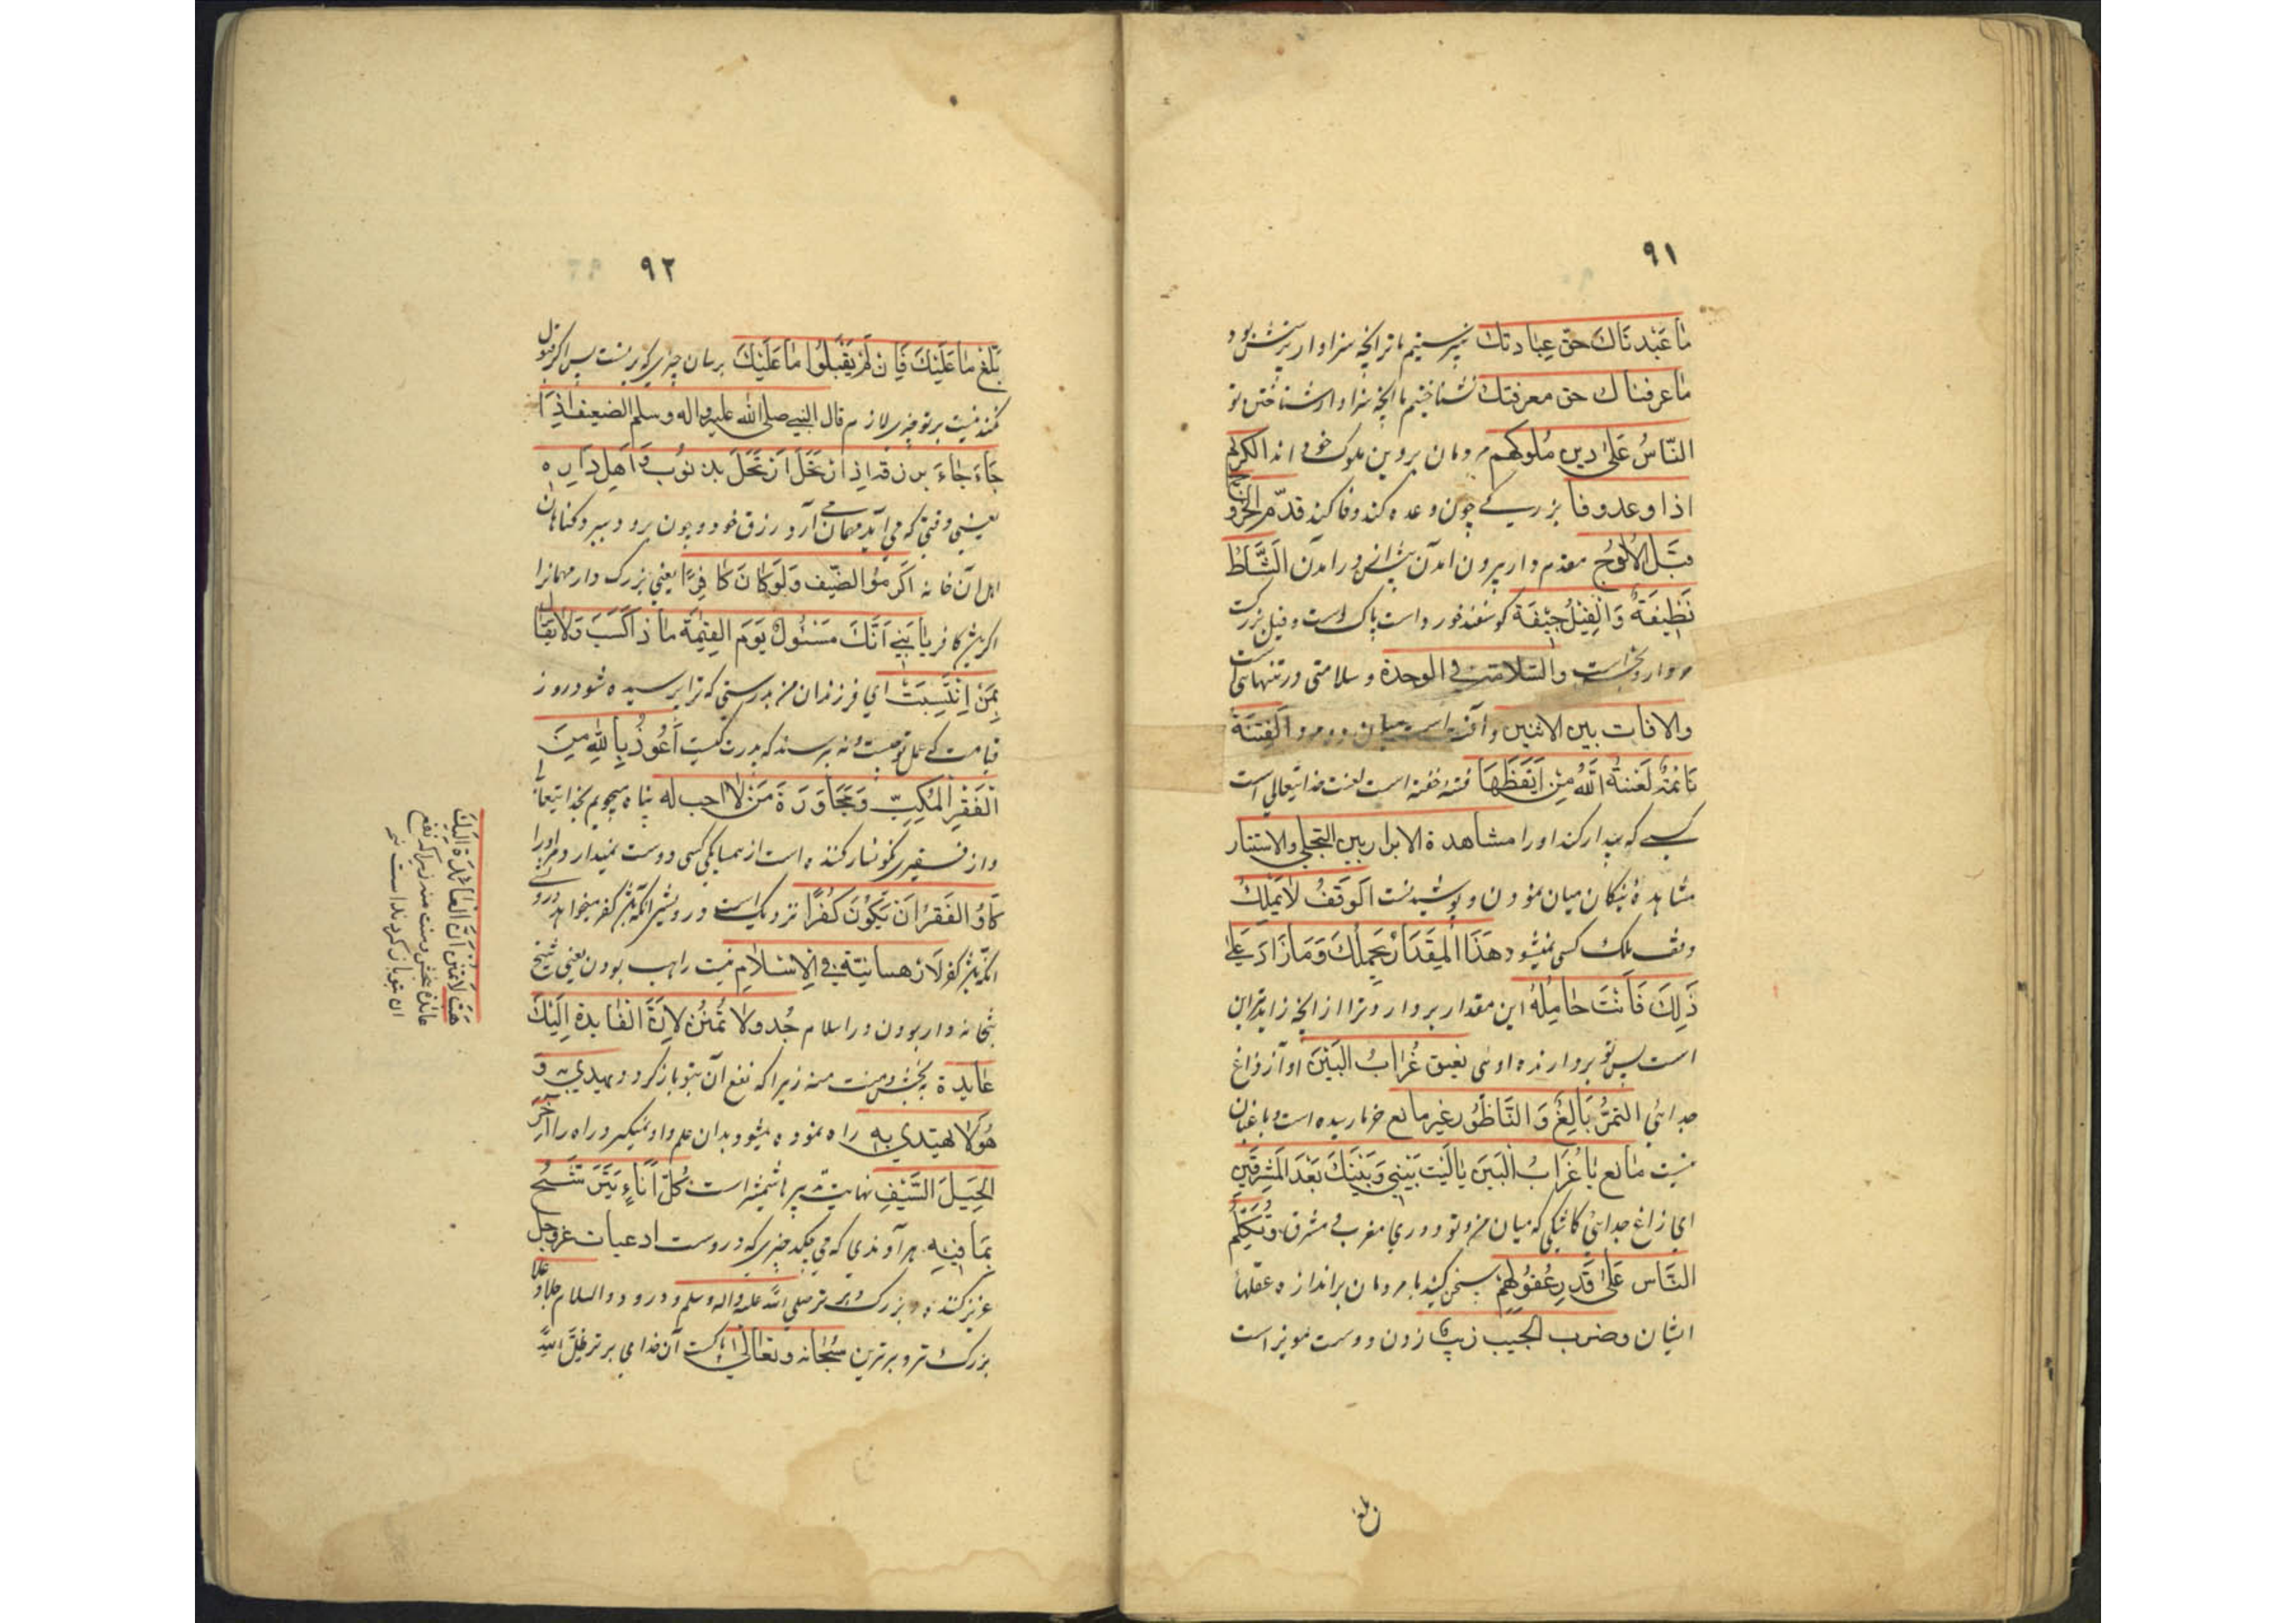 ٩١
ما عَبْدنَاكَ حَقّ عِبادتك نپرستیدیم ما ترا آنچه سزاوار پرستش بود
ما عرفناك حق معرفتك نشناختیم ما آنچه سزاوار شناختن تو
النّاسُ عَلىٰ دين مُلوكهم مردمان بر دین ملوک خود اند الکریم
اذا وعد وفا بزرگی چون وعده کند وفا کند قدّم الخروج
قبَل الوُلوُج مقدم دار بیرون آمدن پیش از درآمدن اَلشَّاةُ
نَظِيفَةٌ وَالْفِيْلُ جِيْفَة کوسفند خورد است پاک است و فیل بزرکست
مردار و نجس است والسّلامة فی الوحدة و سلامتی در تنهائی است
والافات بین الاثنین و آفت است میان دو مرد الفِتنَة
نَائمَةٌ لَعْنَةُ اللّٰهُ مَنْ اَيْقَظَهَا فتنه خفته است لعنت خدایتعالی است
کسی که بیدار کند او را مشاهدة الابرار بین التجلی والاستتار
مشاهدهٔ نیکان میان نمودن و پوشیدنست اَلوَقفُ لَا يَملِكُ
وقف ملک کسی نمیشود هَذَا المِقدَارُ يَحمِلُكَ وَمَا زَادَ عَلىٰ
ذَلِكَ فَانْتَ حامِلُهُ این مقدار بردارد ترا از آنچه زاید براین
است پس تو بردارنده اوئی نعیق غُرَابُ البَيْن آواز زاغ
جدائی التمرُ بَالِغٌ وَالنَّاطُور غیر مانع خرما رسیده است و باغبان
نیست مانع یا غُرَابُ البَیَن یالَیْت بَیْنِي وَبَیْنَكَ بَعْدَ المَشرِقَین
ای زاغ جدائی کاشکی که میان من و تو دوری مغرب و مشرق وتُكَلِّمُ
النَّاس عَلىٰ قَدرِ عُقوُلِهِم سخن کنید با مردمان براندازه عقلها
ایشان وضرب الحبیب زبیب زدن دوست مویز است
بلغ
٩٢
بَلّغ مَا عَلَيْكَ فَاِن لَمْ يَقْبَلُوا مَا عَلَيْكَ برسان چیزی که برتست پس اگر قبول
نکنند نیست بر تو چیزی لازم قال النبي صلى الله عليه واله وسلم الضيف اِذَا
جَاءَ جَاءَ برزقه اذا ارتحل ارتحل بذنوب اَهل داره
یعنی وقتی که می آید مهمان می آرد رزق خود و چون برود میبرد کناهان
اهل آن خانه اَكرِموُا الضَّيف وَلَو كَانَ كَافِرًا یعنی بزرک دار مهمانرا
اکرچه کافر باشد یا بُنَيَّ اَنَّكَ مَسْئولٌ يَوَم القِيٰمَة مَا ذَا كَسَبَ وَلَا يُقَال
بِمَنْ اِنْتَسَبَتْ ای فرزندان من بدرستی که ترا پرسیده شود روز
قیامت که عمل تو چیست و نه پرسند که پدرت کیست اَعُوذُ بِاللّٰه مِنَ
الْفَقْرِ المُكِبِّ وَمُجَاوَرَة مَنْ لَا احب له پناه میجویم بخدایتعالی
و از فقیری نکونسار کننده است از همسایکی کسی دوست نمیدارد مر او را
كَادَ الفَقرُ اَن يَكوُنَ كُفرًا نزدیک است درویشی
لَا رهبانيّة فى الاِسلام نیست راهب بودن یعنی شیخ
بتخانه دار بودن در اسلام جُد ولا تمنُن لانَّ الفَائدة اِلَيكَ
عَايدة بخش و منت منه زیرا که نفع آن بتو باز کردد ویهدی به و
هُوَ لا يهتدى به راه نموده میشود بدان علم و او نمیکیرد راه را آخِرُ
الحِيَل السَّيْفِ نهایت تدبیر ها شمشیر است كُلّ اُنَاءٍ يَتَرَشَّحُ
بِمَا فِيْهِ هر آوندی که می چکد چیزی که دروست ادعیات عزوجل
عزیز کننده و بزرک و برتر صلى اللّٰه عليه واله وسلم و درود والسلام جلا وعلا
بزرک تر و برترین سُبحَانه وتعَالى پاکست آن خدای برتر
هَبْ لَا تمنن لاَنَّ العَائدَة اِلَيكَ
عائدة بخش و منت منه زیرا که نفع
آن بتو باز کردنده است